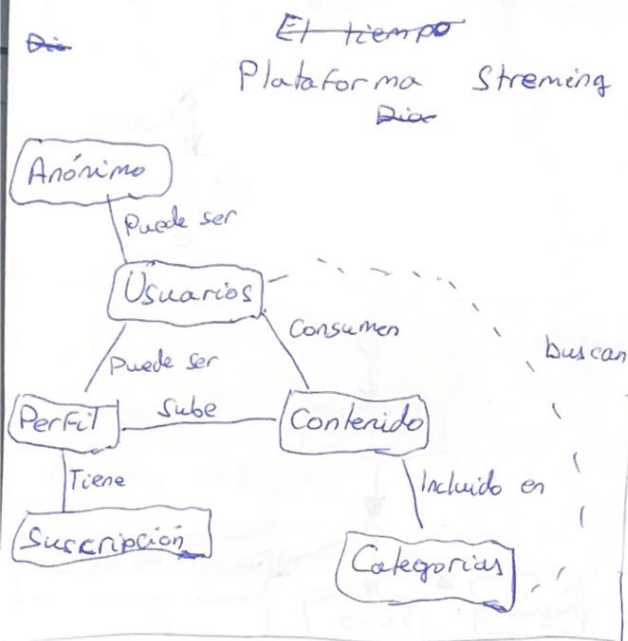 Dia
El tiempo
Plataforma Streming
Dia
Anónimo
Puede ser
Usuarios
Consumen
buscan
Puede ser
Perfil
Sube
Contenido
Tiene
Incluido en
Suscripción
Categorias